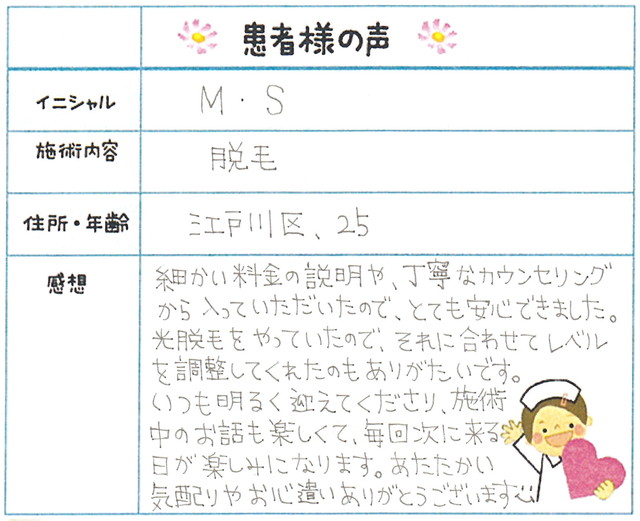 患者様の声
イニシャル
M・S
施術内容
脱毛
住所・年齢
江戸川区、25
感想
細かい料金の説明や、丁寧なカウンセリング
から入っていただいたので、とても安心できました。
光脱毛をやっていたので、それに合わせてレベル
を調整してくれたのもありがたいです。
いつも明るく迎えてくださり、施術
中のお話も楽しくて、毎回次に来る
日が楽しみになります。あたたかい
気配りやお心遣いありがとうございます